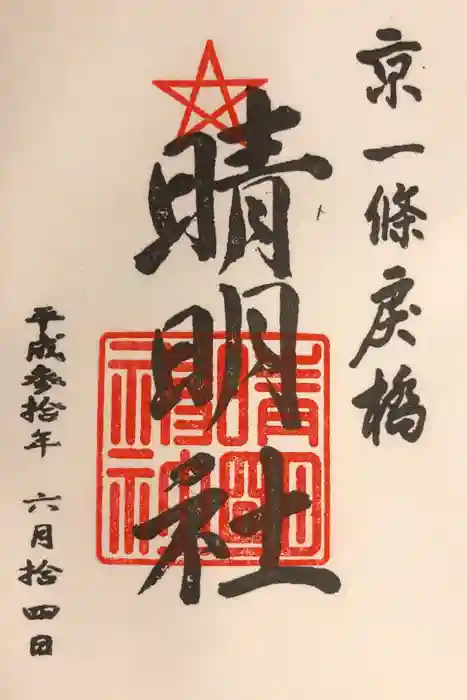 京一條戻橋
晴明社
晴明神社
平成參拾年 六月拾四日